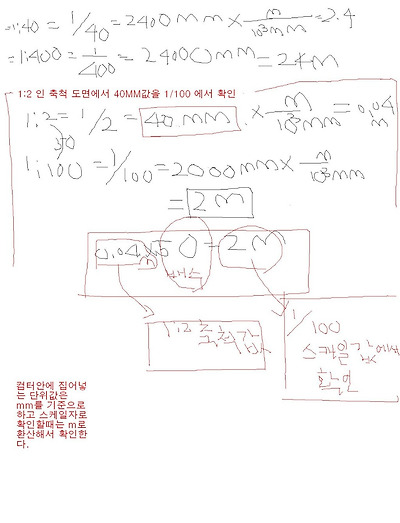 =1:40 = 1/40 = 2400mm × m/10³mm = 2.4
=1:400 = 1/400 = 24000mm = 24m
1:2 인 축척 도면에서 40MM값을 1/100 에서 확인
1:2 = 1/2 = 40 mm × m/10³mm = 0.04 m
50
1:100 = 1/100 = 2000mm × m/10³mm
= 2m
0.04m × 50 = 2m
배수
1:2 축척값
1/100
스케일값에서
확인
컴터안에 집어넣
는 단위값은
mm를 기준으로
하고 스케일자로
확인할때는 m로
환산해서 확인한
다.